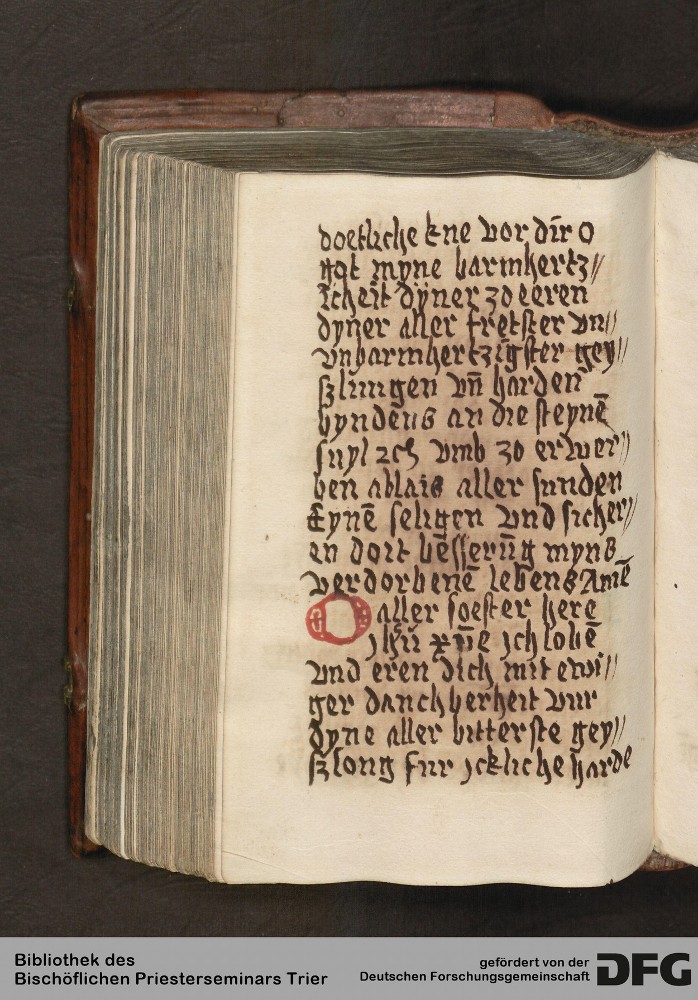 doetliche kne vor dir O
got myne barmhertz//
icheit dyner zo eeren
dyner aller fretster vn//
vnbarmhertzigster gey//
szlungen vn̄ harden
byndens an die steynē
suyl ich vmb zo erwer//
ben ablais aller sunden
Eynē seligen vnd sicher//
en doit besserūg myns
verdorbenē lebens Amē
O aller soester here
jhū xp̄e jch lobē
vnd eren dich mit ewi//
ger danchberheit vur
dyne aller bitterste gey//
szlong fur jckliche harde
Bibliothek des
Bischöflichen Priesterseminars Trier
gefördert von der
Deutschen Forschungsgemeinschaft
DFG